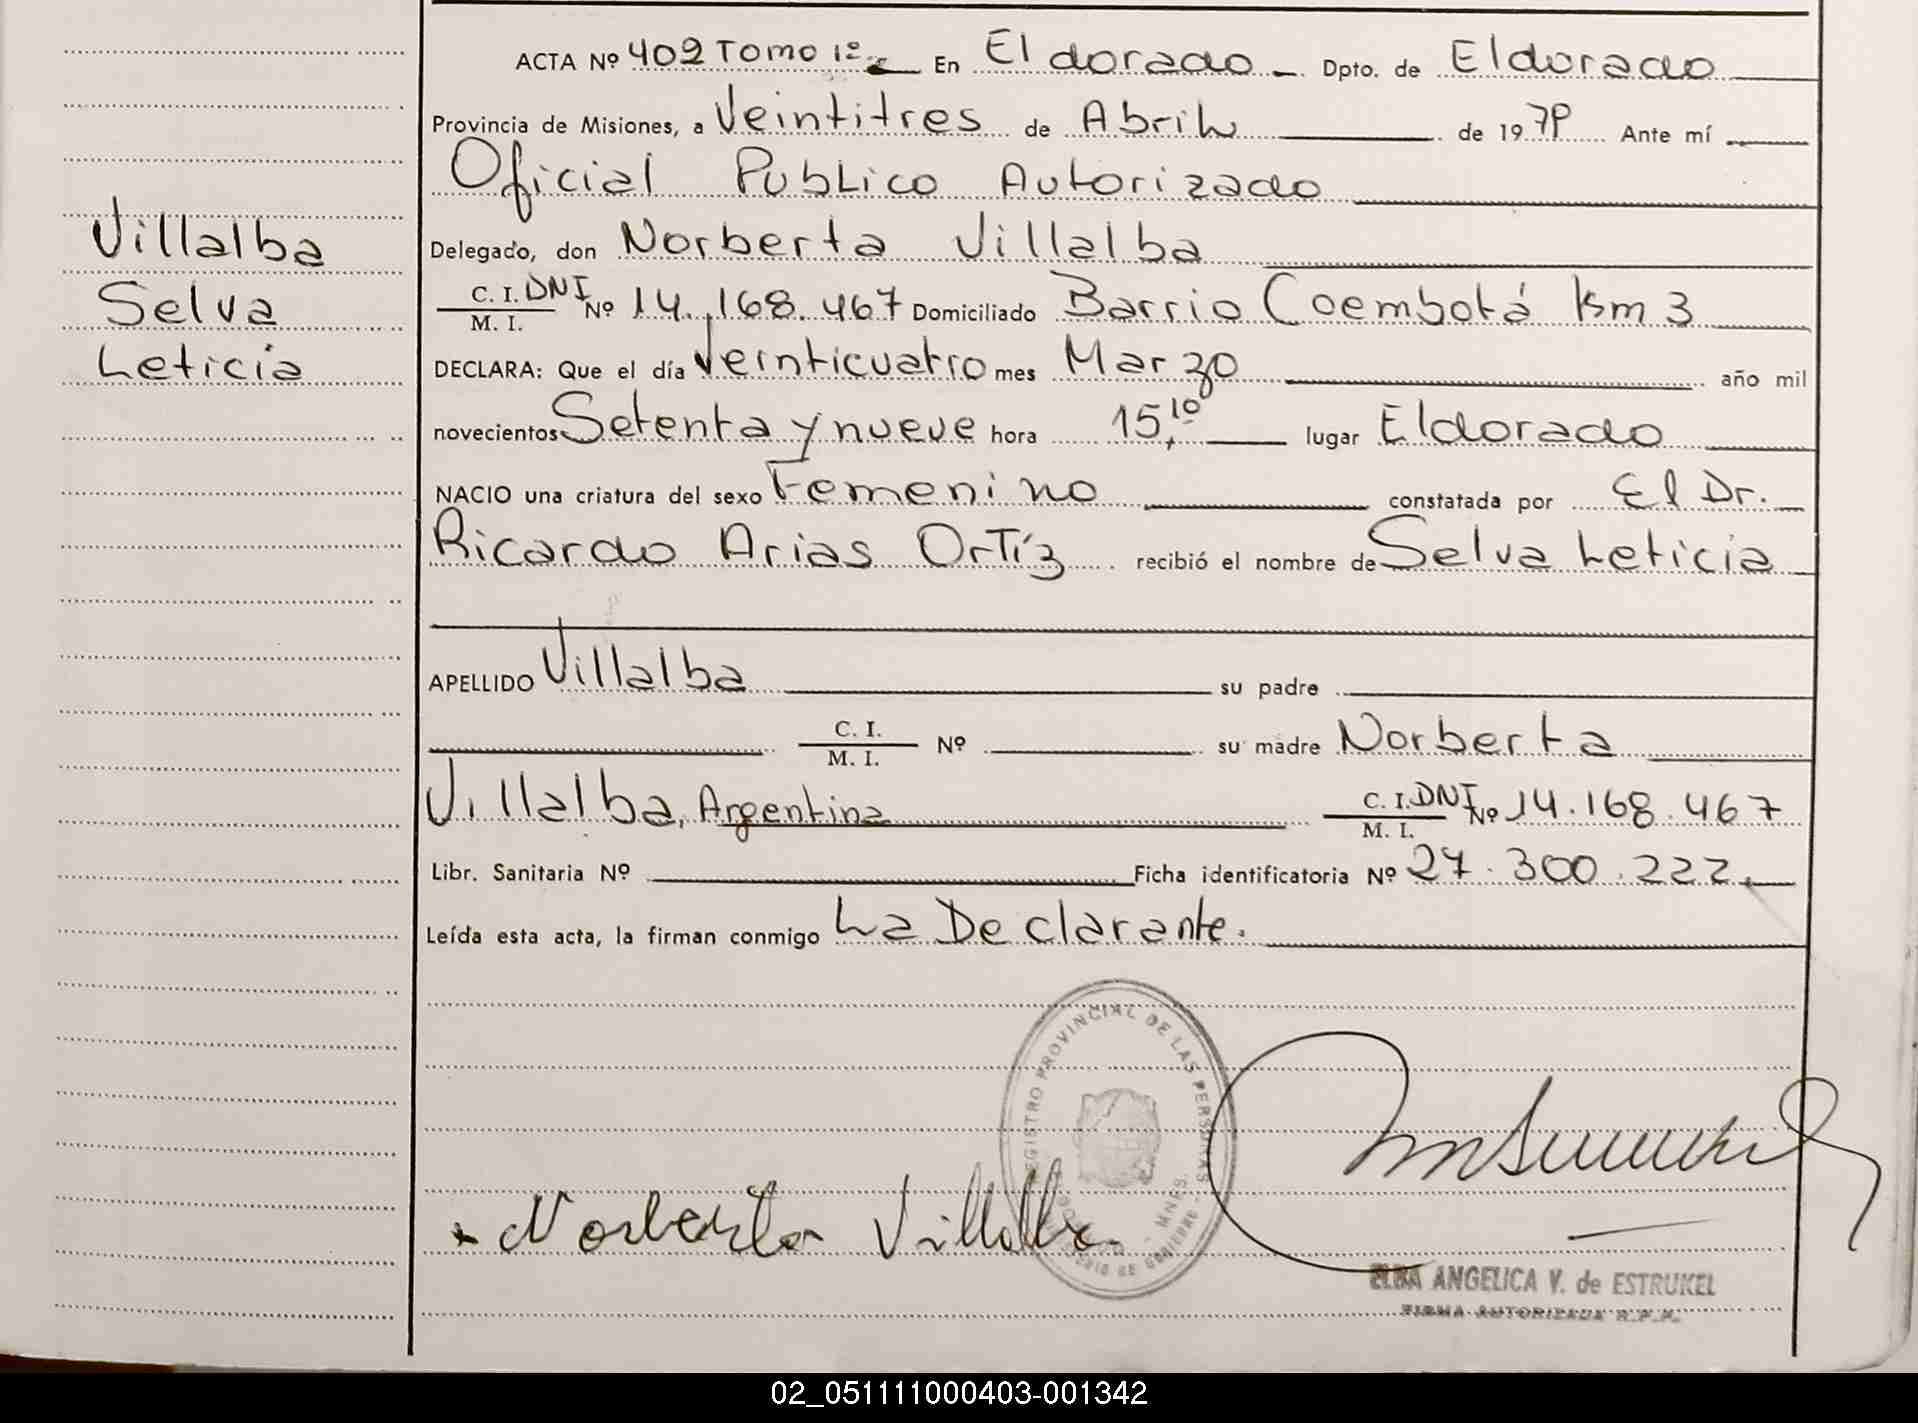 ACTA Nº 409 Tomo 1º En Eldorado Dpto. de Eldorado
Provincia de Misiones, a Veintitres de Abril de 1979 Ante mí
Oficial Publico Autorizado
Villalba
Selva
Leticia
Delegado, don Norberta Villalba
C. I. DNI Nº 14.168.467 Domiciliado Barrio Coembotá Km 3
M. I.
DECLARA: Que el día Veinticuatro mes Marzo año mil
novecientos Setenta y nueve hora 15,10 lugar Eldorado
NACIO una criatura del sexo Femenino constatada por El Dr.
Ricardo Arias Ortíz recibió el nombre de Selva Leticia
APELLIDO Villalba su padre
C. I. Nº su madre Norberta
M. I.
Villalba, Argentina C. I. DNI Nº 14.168.467
M. I.
Libr. Sanitaria Nº Ficha identificatoria Nº 27.300.222
Leída esta acta, la firman conmigo La Declarante.
REGISTRO PROVINCIAL DE LAS PERSONAS
MNES.
Norberta Villalba
ELBA ANGELICA V. de ESTRUKEL
FIRMA AUTORIZADA R.P.P.
02_051111000403-001342